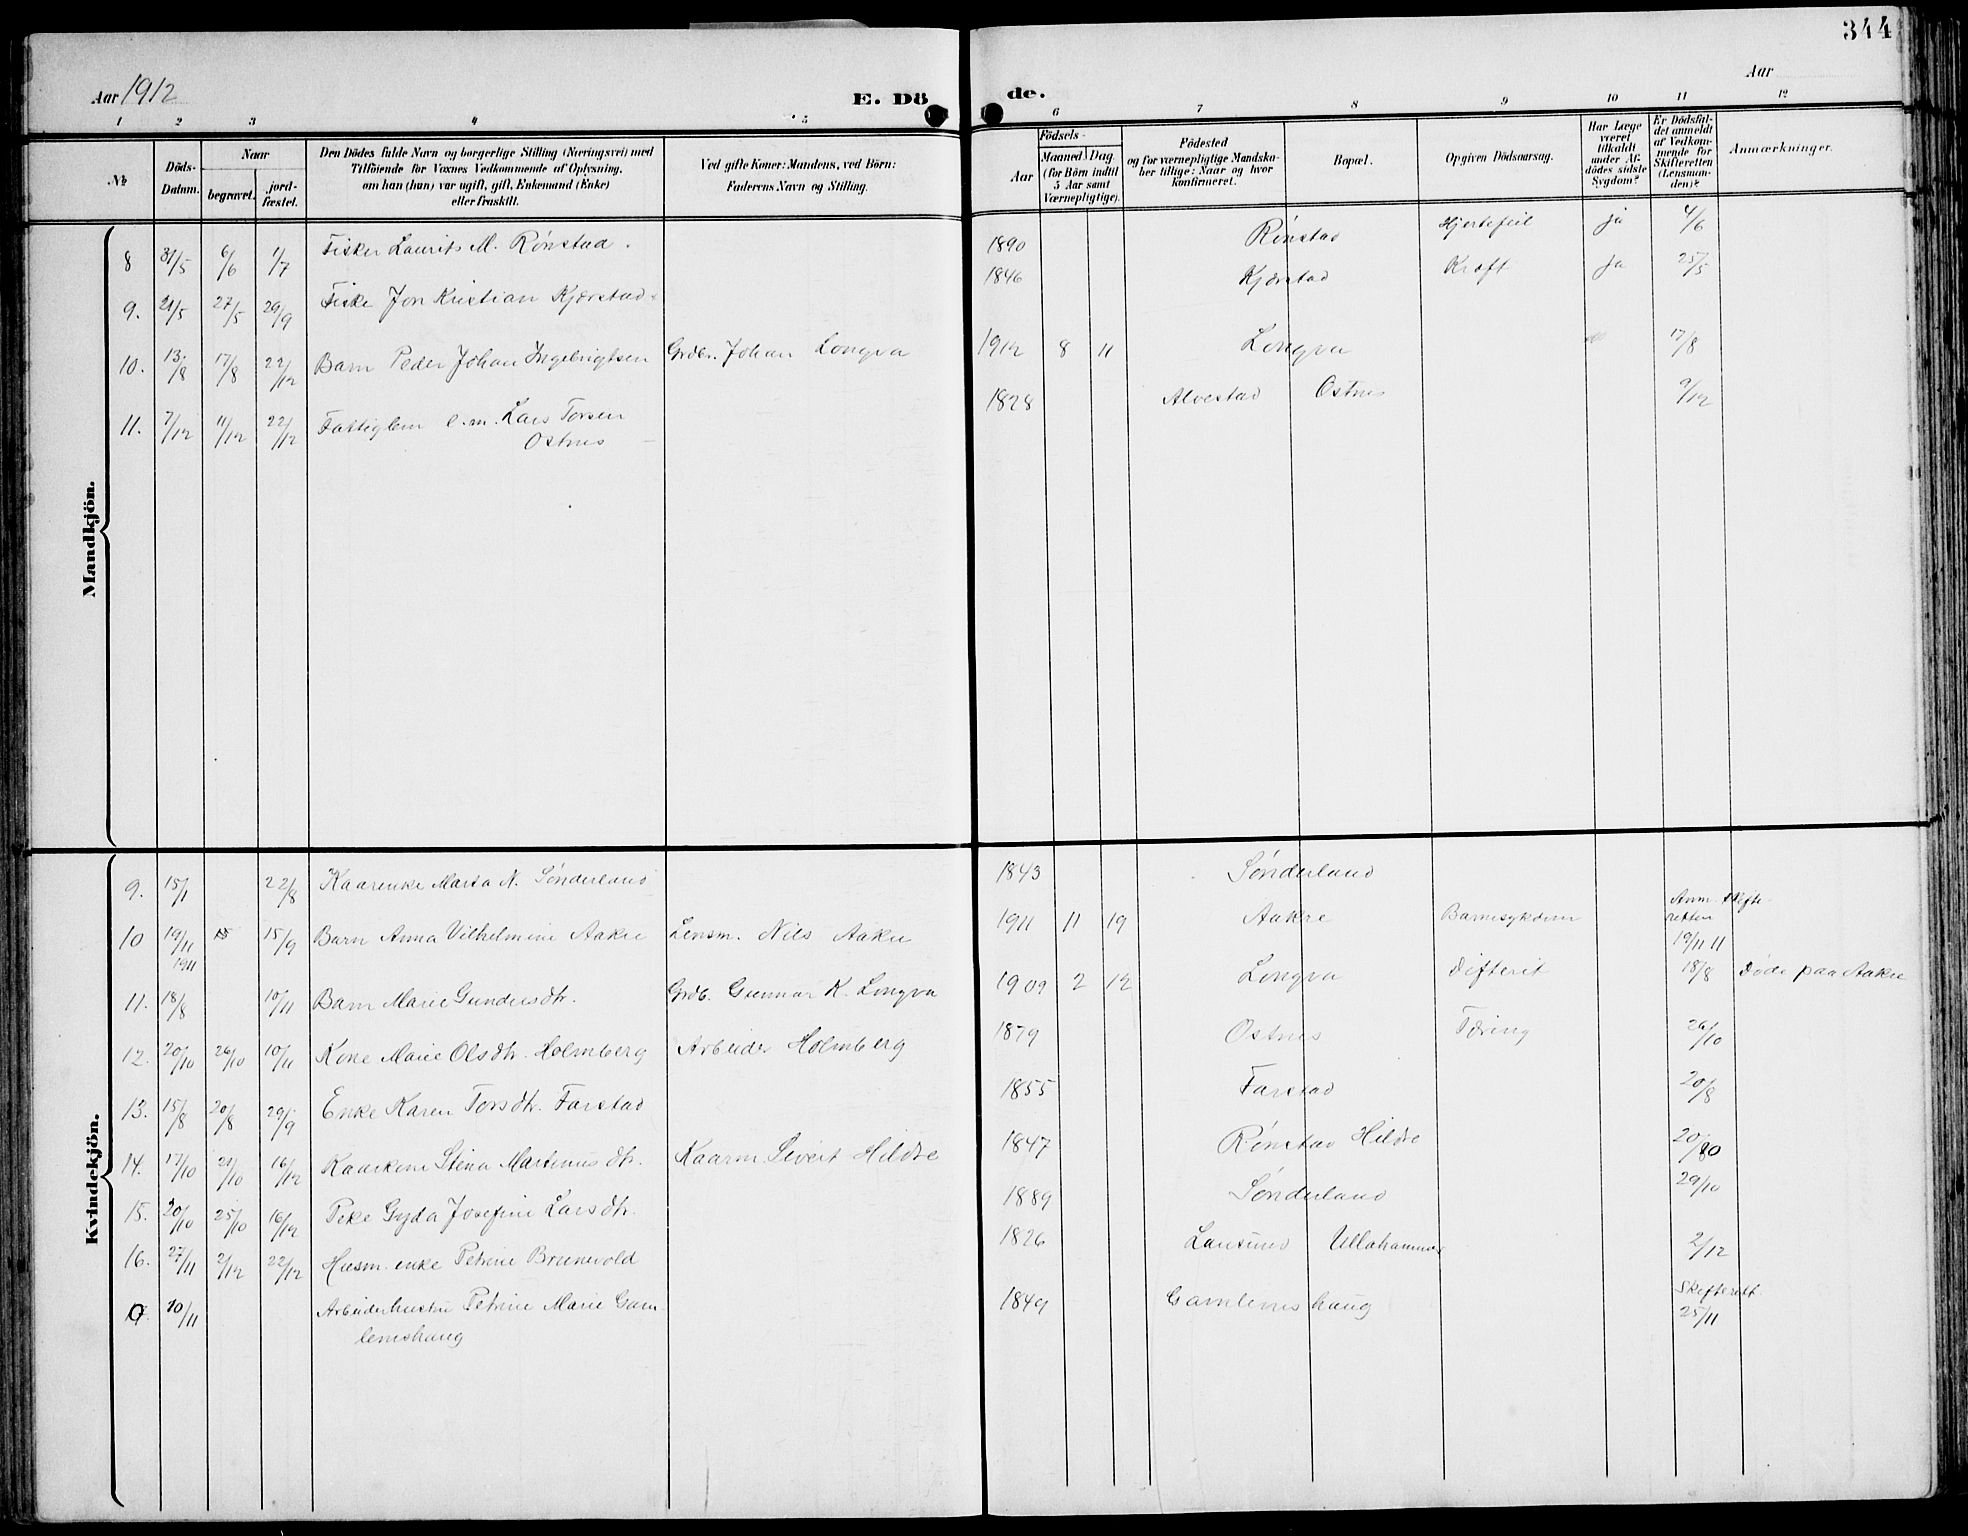 344
Aar 1912
E. Dö
de.
Aar
1 2 3 4 5 6 7 8 9 10 11 12
№
Döds-Datum.
Naar
begravet.
jord-fæstet.
Den Dödes fulde Navn og borgerlige Stilling (Næringsvei) med
Tilföiende for Voxnes Vedkommende af Oplysning,
om han (hun) var ugift, gift, Enkemand (Enke)
eller fraskilt.
Ved gifte Koner: Mandens, ved Börn:
Faderens Navn og Stilling.
Födsels-
Aar
Maaned Dag
(for Börn indtil
5 Aar samt
Værnepligtige).
Födested
og for værnepligtige Mandska-
ber tillige: Naar og hvor
konfirmeret.
Bopæl.
Opgiven Dödsaarsag.
Har Læge
været
tilkaldt
under Af-
dödes sidste
Sygdom?
Er Dödsfal-
det anmeldt
af Vedkom-
mende for
Skifteretten
(Lensman-
den)?
Anmærkninger.
Mandkjön.
8 31/5 6/6 1/7 Fisker Laurits M. Rønstad. 1890 Rønstad Hjertefeil ja 4/6
9. 21/5 27/5 29/9 Fiske Jon Kristian Kjærstad 1846 Kjærstad Kræft ja 25/5
10. 13/8 17/8 22/12 Barn Peder Johan Ingebrigtsen Grdbr. Johan Longva 1912 8 11 Longva 17/8
11. 7/12 11/12 22/12 Fattiglem e.m. Lars Torsen
Ostnes 1828 Alvestad Ostnes 9/12
Kvindekjön.
9. 15/1 22/8 Kaarenke Marta N. Sønderland 1843 Sønderland
10 19/11 1911 15/9 Barn Anna Vilhelmine Aakre Lensm. Nils Aakre 1911 11 19 Aakre Barnesykdom Anm. skifte-
retten
19/11 11
11. 18/8 10/11 Barn Marie Gundersdtr. Grdb. Gunnar K. Longva 1909 2 12 Longva Difterit 18/8 Døde paa Aakre
12. 20/10 26/10 10/11 Kone Marie Olsdtr. Holmberg Arbeider Holmberg 1879 Ostnes Tæring 26/10
13. 15/8 20/8 29/9 Enke Karen Torsdtr. Farstad 1855 Farstad 20/8
14. 17/10 21/10 16/12 Kaarkone Stina Martinusdtr. Kaarm. Sivert Hildre 1847 Rønstad Hildre 20/10
15. 20/10 25/10 16/12 Peke Gyda Josefine Larsdtr. 1889 Sønderland 29/10
16. 27/11 2/12 22/12 Husm. enke Petrine Brunevold 1826 Lausund Ullahammer 2/12
10/11 Arbeiderhustru Petrine Marie Gam-
lemshaug 1849 Gamlemshaug Skifterett
25/11